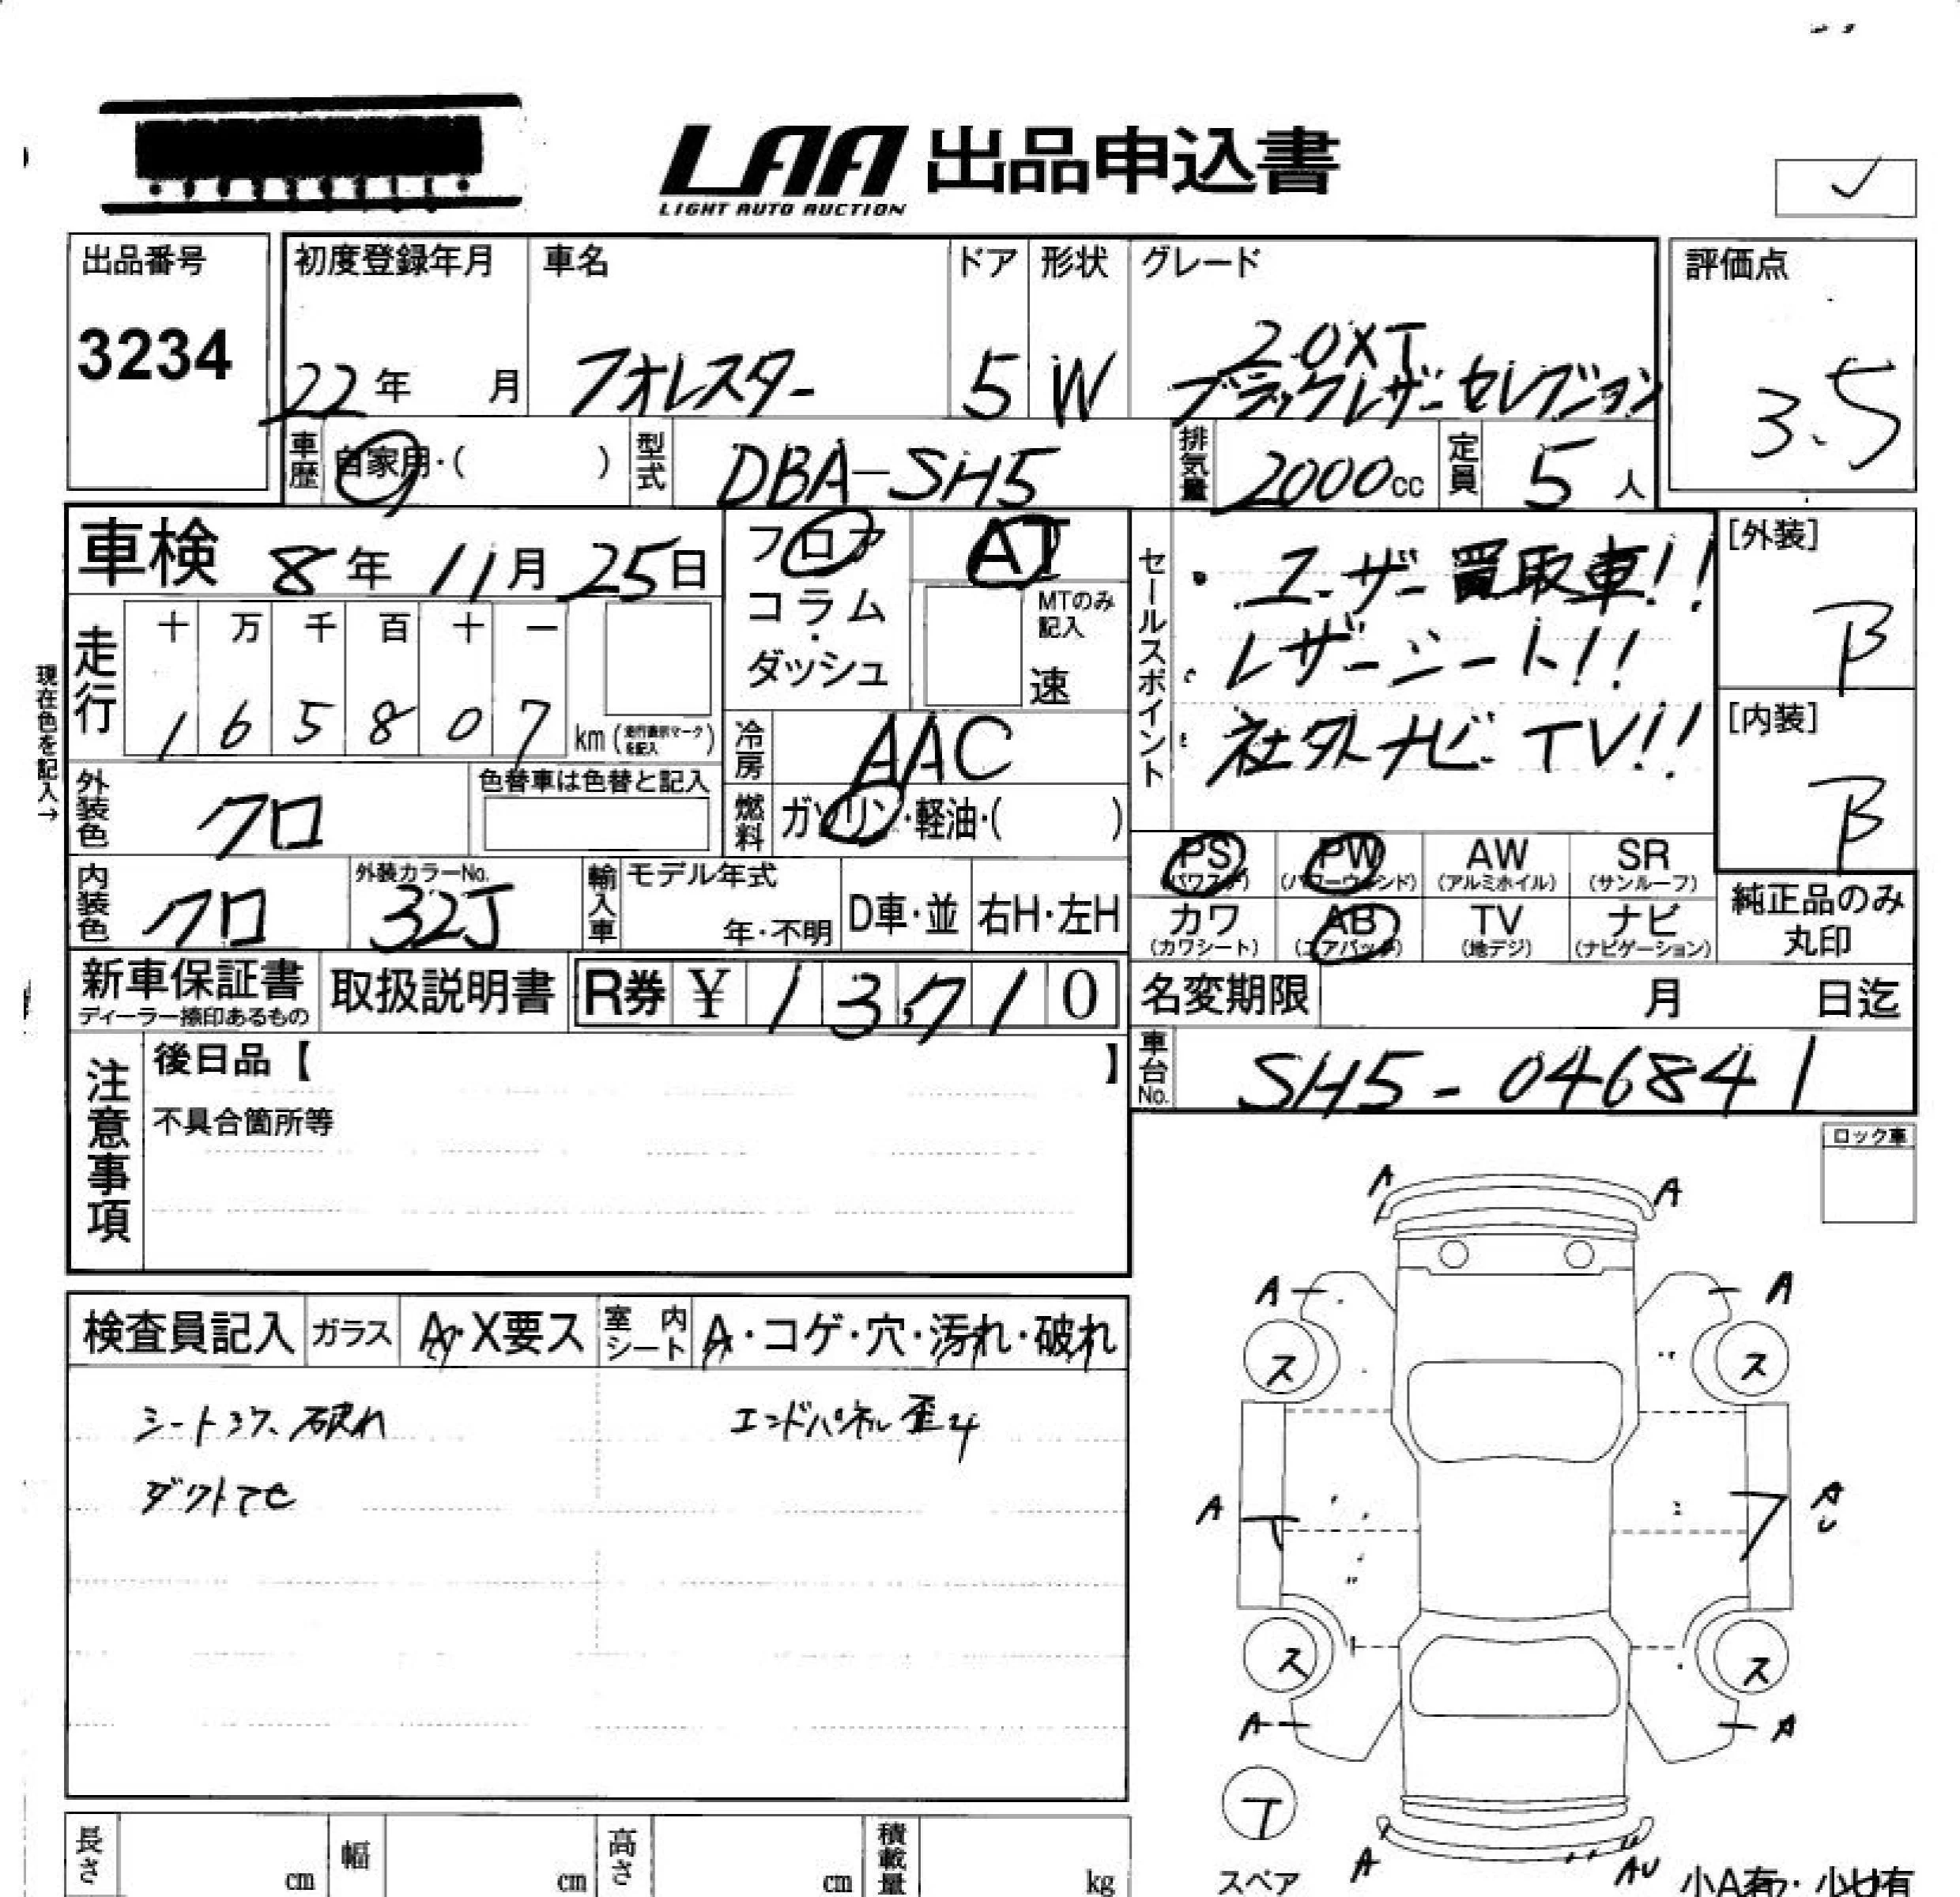 LAA 出品申込書
LIGHT AUTO AUCTION
✓
出品番号
3234
初度登録年月
22年 月
車名
フォレスター
ドア
5
形状
W
グレード
2.0XT
ブラックレザーセレクション
評価点
3.5
車歴 自家用・( )
型式 DBA-SH5
排気量 2000cc
定員 5人
車検 8年 11月 25日
現在色を記入→
走行
十 万 千 百 十 一
1 6 5 8 0 7 km (走行表示マークを記入)
フロア
コラム
・
ダッシュ
AT
MTのみ記入
速
冷房 AAC
燃料 ガソリン・軽油・( )
外装色 クロ
色替車は色替と記入
内装色 クロ
外装カラーNo.
32J
輸入車
モデル年式
年・不明
D車・並
右H・左H
セールスポイント
・ユーザー買取車!!
レザーシート!!
社外ナビ・TV!!
[外装]
B
[内装]
B
PS (パワステ) PW (パワーウィンド) AW (アルミホイル) SR (サンルーフ)
カワ (カワシート) AB (エアバッグ) TV (地デジ) ナビ (ナビゲーション)
純正品のみ
丸印
新車保証書
ディーラー捺印あるもの
取扱説明書
R券 ¥ 13,710
名変期限 月 日迄
車台No. SH5-046841
注意事項
後日品【 】
不具合箇所等
ロック車
検査員記入
ガラス A・X要ス
室内シート A・コゲ・穴・汚れ・破れ
シートスレ、破れ
エンドパネル歪み
ダクトマモ
A A
A A
ス ス
A A
U
ス ス
A A
T
スペア
A AU
小A有・小U有
長さ cm
幅 cm
高さ cm
積載量 kg